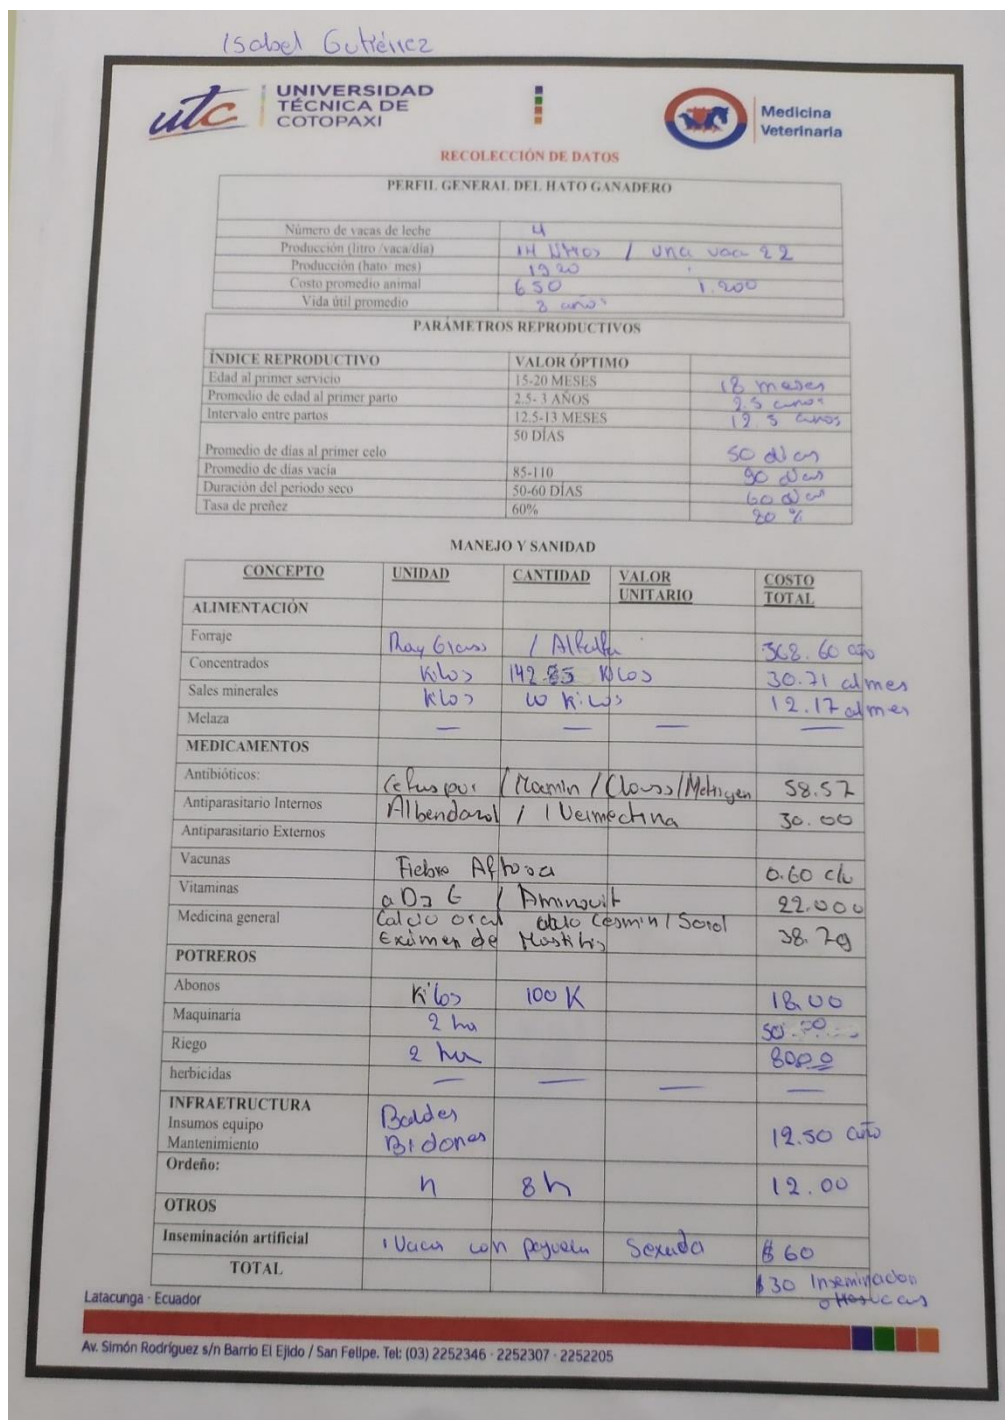 Isabel Gutiérrez
utc
UNIVERSIDAD
TÉCNICA DE
COTOPAXI
Medicina
Veterinaria
RECOLECCIÓN DE DATOS
PERFIL GENERAL DEL HATO GANADERO
Número de vacas de leche 4
Producción (litro /vaca/día) 14 litros / una vaca 22
Producción (hato/ mes) 1920
Costo promedio animal 650 1.200
Vida útil promedio 8 años
PARÁMETROS REPRODUCTIVOS
ÍNDICE REPRODUCTIVO VALOR ÓPTIMO
Edad al primer servicio 15-20 MESES 18 meses
Promedio de edad al primer parto 2.5- 3 AÑOS 2.5 años
Intervalo entre partos 12.5-13 MESES 12.5 años
Promedio de días al primer celo 50 DÍAS 50 días
Promedio de días vacía 85-110 90 días
Duración del periodo seco 50-60 DÍAS 60 días
Tasa de preñez 60% 80 %
MANEJO Y SANIDAD
CONCEPTO UNIDAD CANTIDAD VALOR UNITARIO COSTO TOTAL
ALIMENTACIÓN
Forraje Ray Grass / Alfalfa 368.60 año
Concentrados Kilos 142.85 Kilos 30.71 al mes
Sales minerales Kilos 10 Kilos 12.17 al mes
Melaza — — — —
MEDICAMENTOS
Antibióticos: / / / 58.57
Antiparasitario Internos Albendazol / Ivermectina 30.00
Antiparasitario Externos
Vacunas Fiebre Aftosa 0.60 c/u
Vitaminas / Aminovit 22.000
Medicina general Calcio oral / 38.79
Exámen de Mastitis
POTREROS
Abonos Kilos 100 K 18.00
Maquinaria 2 ha 50.00
Riego 2 ha
herbicidas — — — —
INFRAETRUCTURA
Insumos equipo Baldes
Mantenimiento Bidones 12.50 año
Ordeño: h 8h 12.00
OTROS
Inseminación artificial 1 Vaca con pajuela Sexada $ 60
TOTAL $30 Inseminacion
otras vacas
Latacunga - Ecuador
Av. Simón Rodríguez s/n Barrio El Ejido / San Felipe. Tel: (03) 2252346 - 2252307 - 2252205